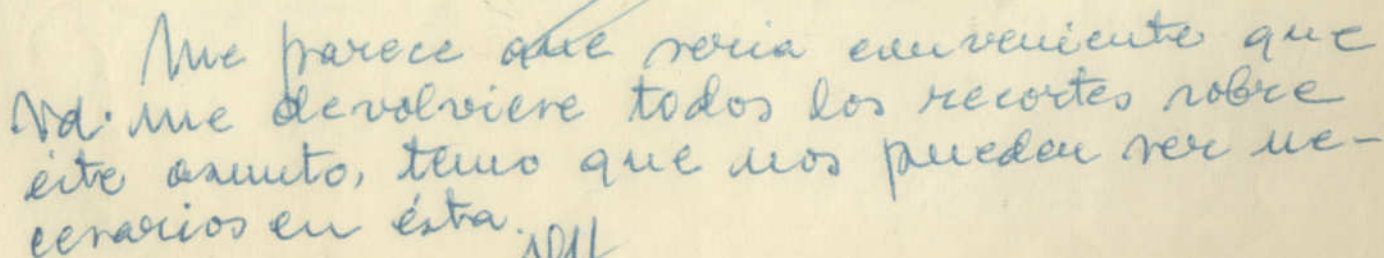 Me parece que seria conveniente que
Vd. me devolviese todos los recortes sobre
éste asunto, temo que nos puedan ser ne-
cesarios en ésta.